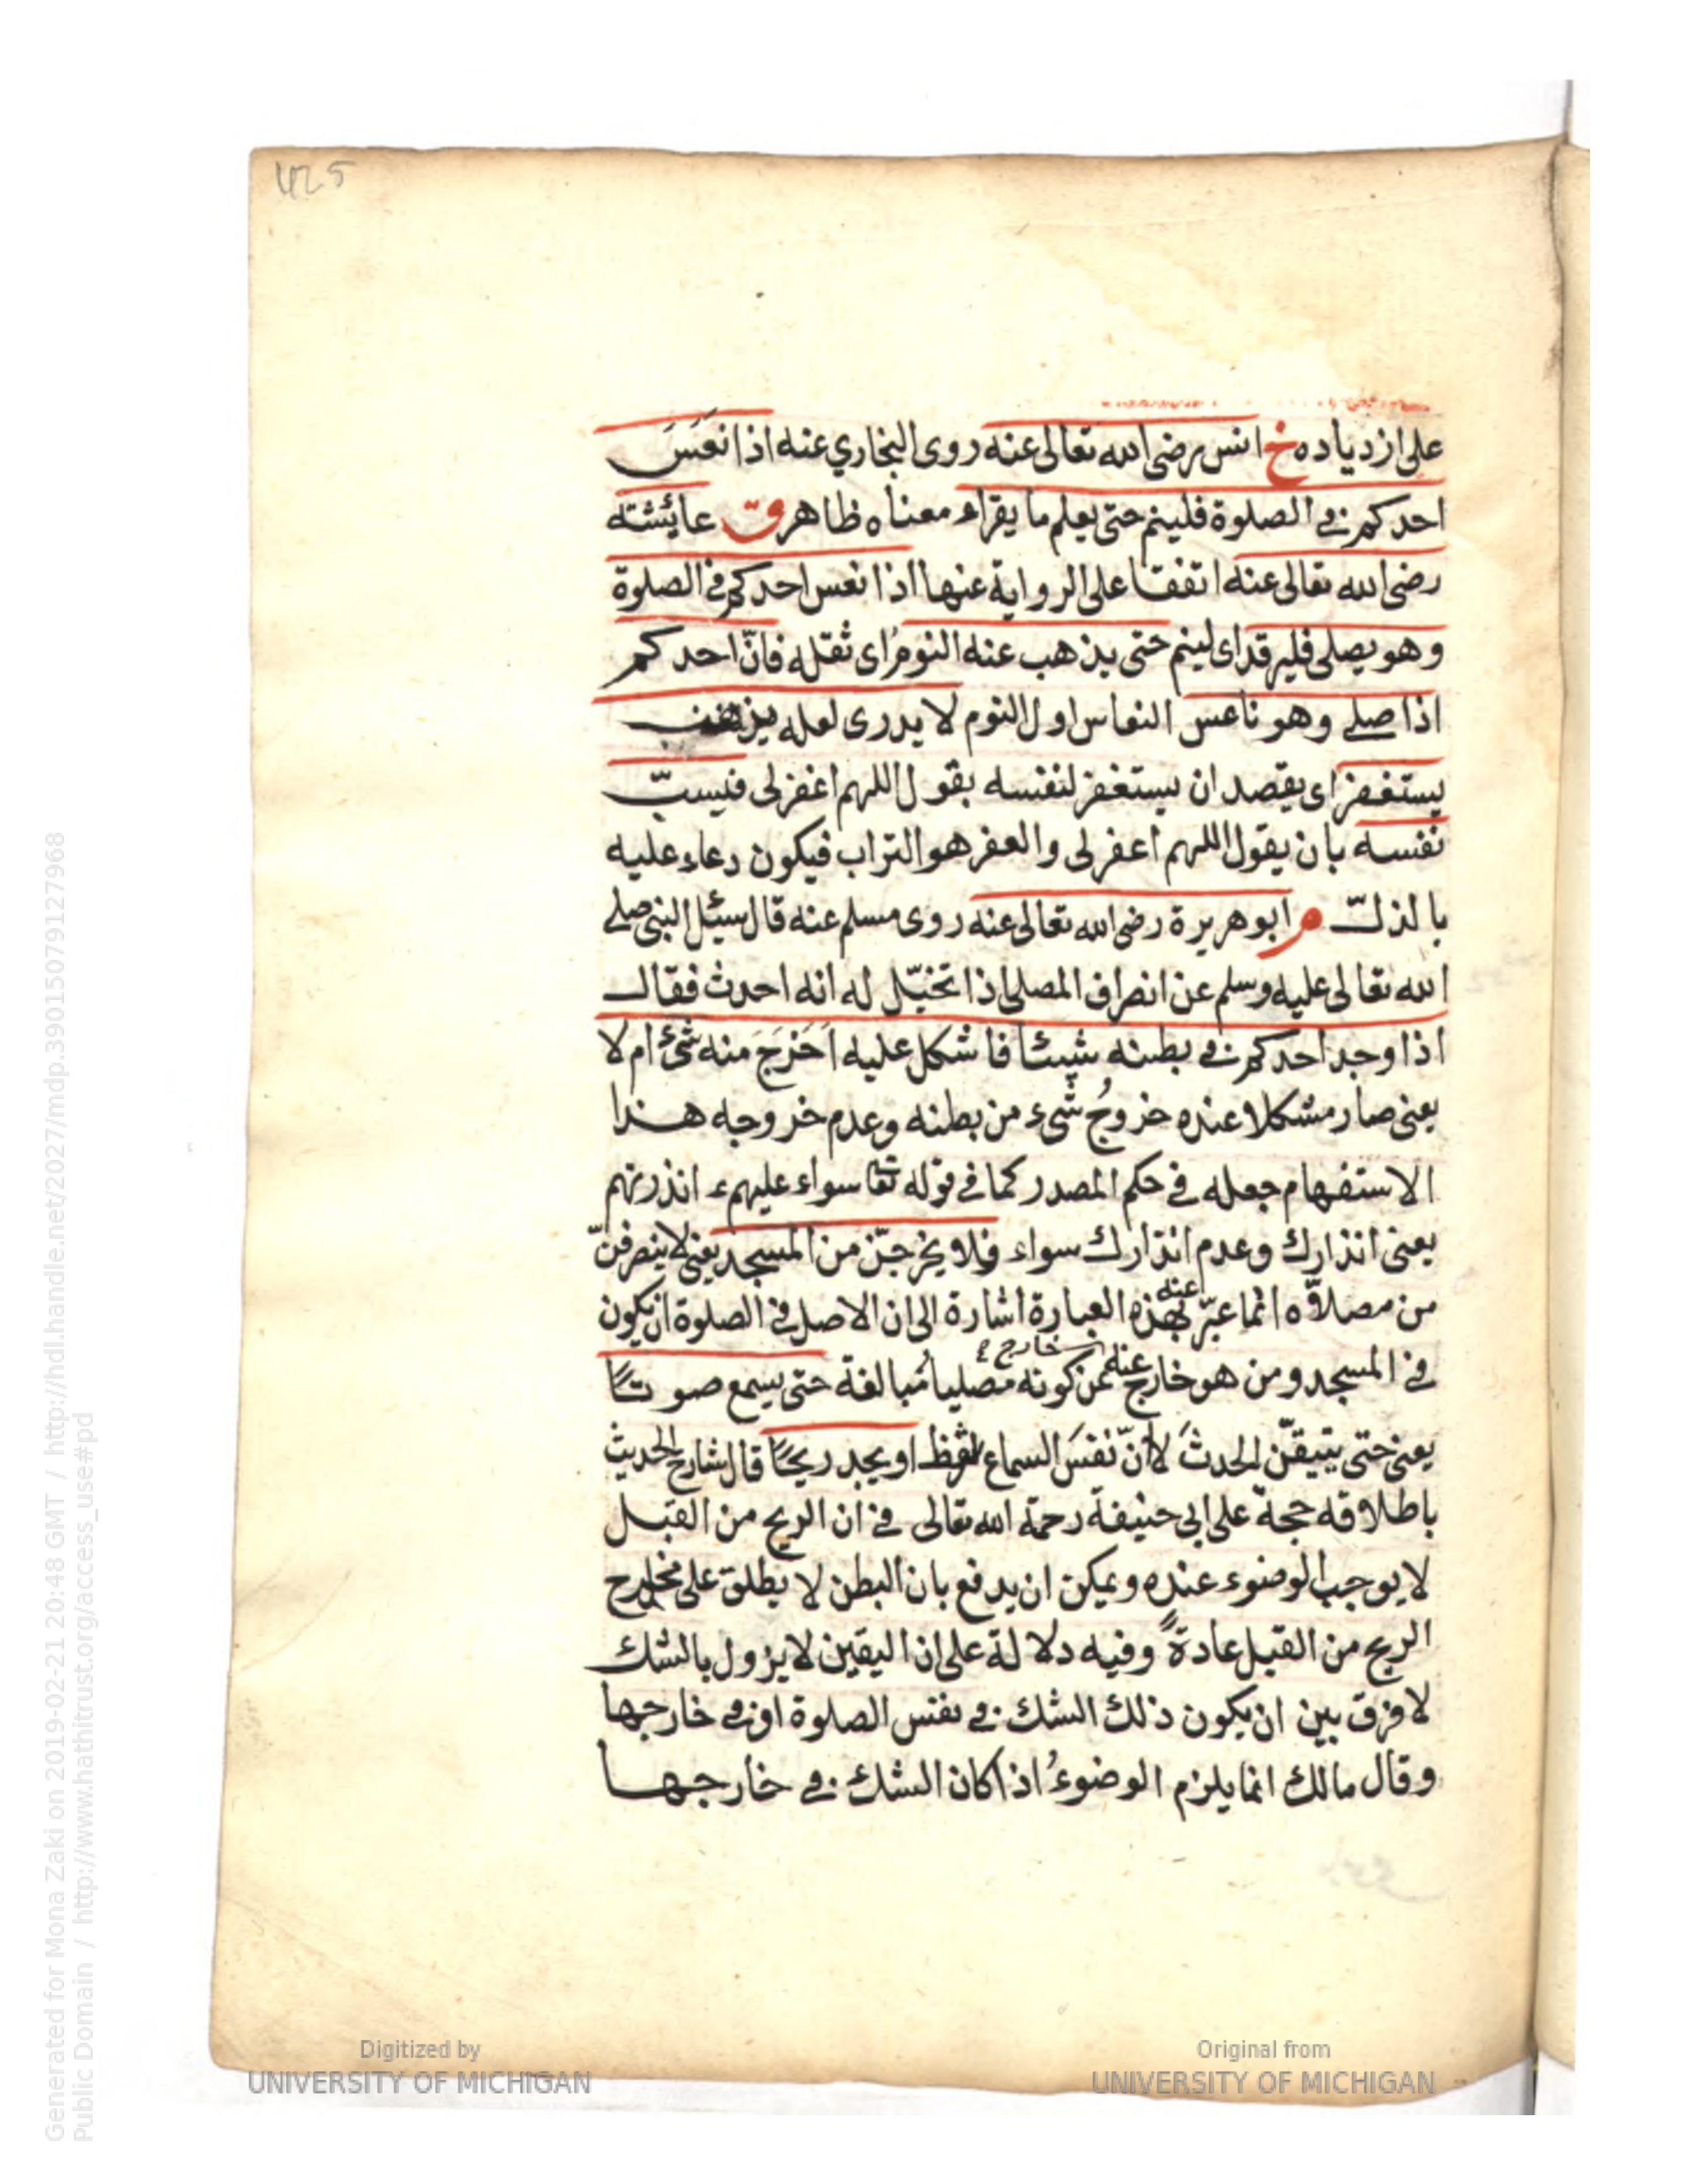 425
على ازدياده خ انس رضى الله تعالى عنه روى البخاري عنه اذا نعَسَ
احدكم فى الصلوة فلينم حتى يعلم ما يقراء معناه ظاهر ق عايشته
رضى الله تعالى عنه اتفقا على الرواية عنها اذا نعس احدكم فى الصلوة
وهو يصلى فليرقد اى لينم حتى يذهب عنه النومُ اى ثقله فانّ احدكم
اذا صلى وهو ناعس النعاس اول النوم لا يدرى لعله يذهب
يستغفر اى يقصد ان يستغفر لنفسه بقول اللهم اغفر لى فيسبّ
نفسه بان يقول اللهم اعفر لى والعفر هو التراب فيكون دعاء عليه
بالذلّ م ابو هريرة رضى الله تعالى عنه روى مسلم عنه قال سئل النبى صلى
الله تعالى عليه وسلم عن انصراف المصلى اذا تخيّل له انه احدث فقال
اذا وجد احدكم فى بطنه شيئا فاشكل عليه اَخَرَجَ منه شئ ام لا
يعنى صار مشكلا عنده خروجُ شىء من بطنه وعدم خروجه هذا
الاستفهام جعله فى حكم المصدر كما فى قوله تعا سواء عليهم ء انذرتهم
يعنى انذارك وعدم انذارك سواء فلا يخرجنّ من المسجد يعنى لا ينصرفنّ
من مصلاّه انما عبّر عنه بهذه العبارة اشارة الى ان الاصل فى الصلوة ان يكون
فى المسجد ومن هو خارج عنه خارج عن كونه مصليا مُبالغة حتى يسمع صوتًا
يعنى حتى يتيقّن الحدثَ لا انّ نفسَ السماع شرط او يجد ريحًا قال شارح الحديث
باطلاقه حجة على ابى حنيفة رحمة الله تعالى فى ان الريح من القبل
لا يوجب الوضوء عنده ويمكن ان يدفع بان البطن لا يطلق على مخارج
الريح من القبل عادةً وفيه دلالة على ان اليقين لا يزول بالشك
لا فرق بين ان يكون ذلك الشك فى نفس الصلوة او فى خارجها
وقال مالك انما يلزم الوضوءُ اذا كان الشك فى خارجها
Generated for Mona Zaki on 2019-02-21 20:48 GMT / http://hdl.handle.net/2027/mdp.39015079127968
Public Domain / http://www.hathitrust.org/access_use#pd
Digitized by
UNIVERSITY OF MICHIGAN
Original from
UNIVERSITY OF MICHIGAN